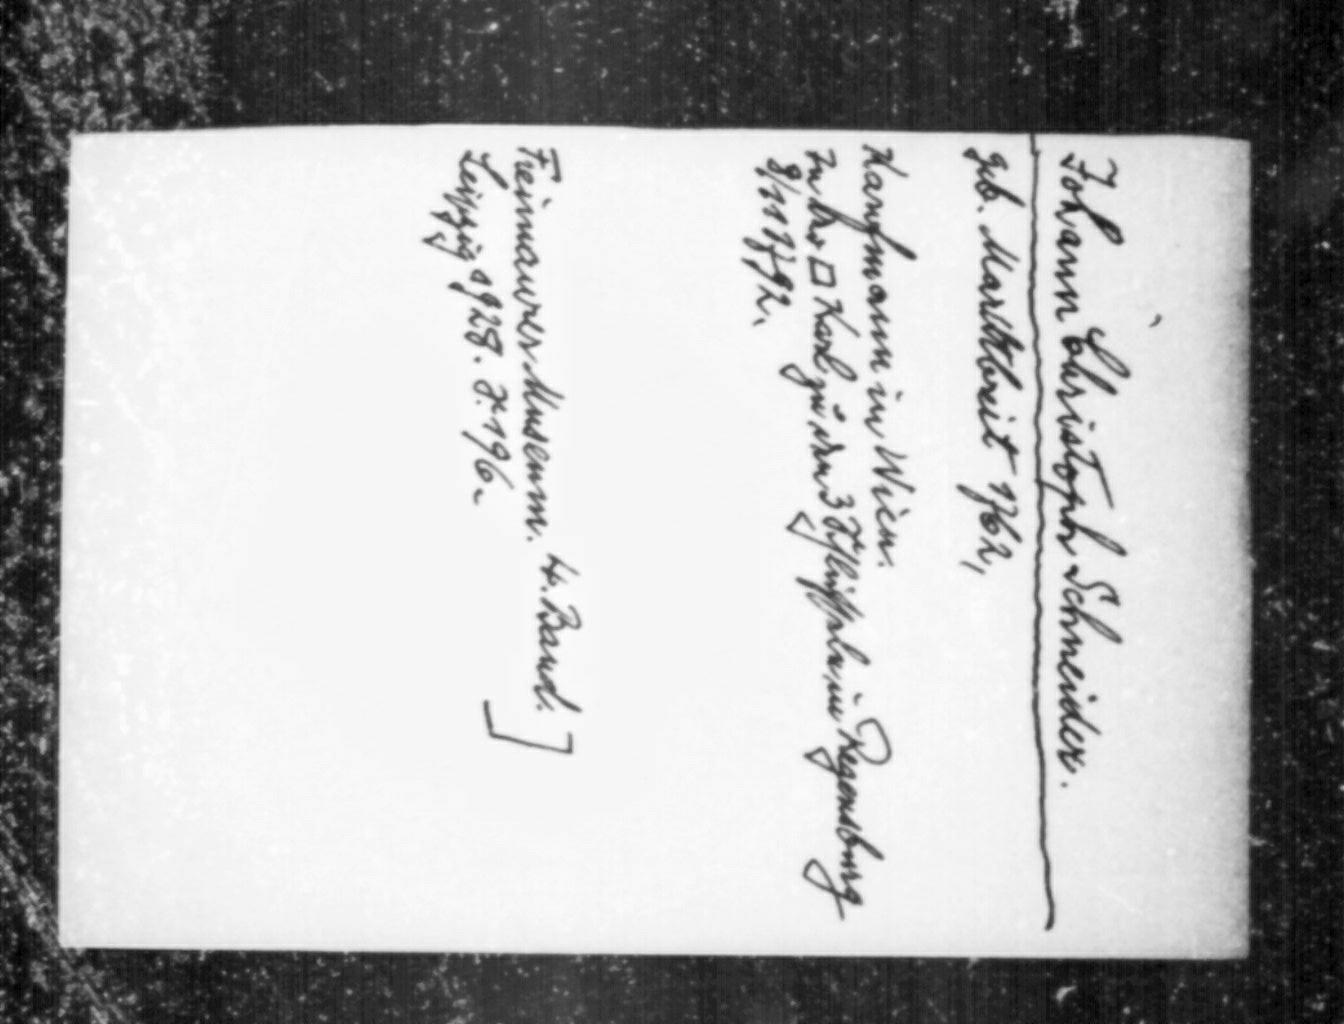 Johann Christoph Schneider.
geb. Marktbreit 1762,
Kaufmann in Wien.
In der □ Karl zu den 3 Schlüsseln in Regensburg
9/11 1792.
Freimaurer Museum. 4. Band.
Leipzig 1928. S. 196.